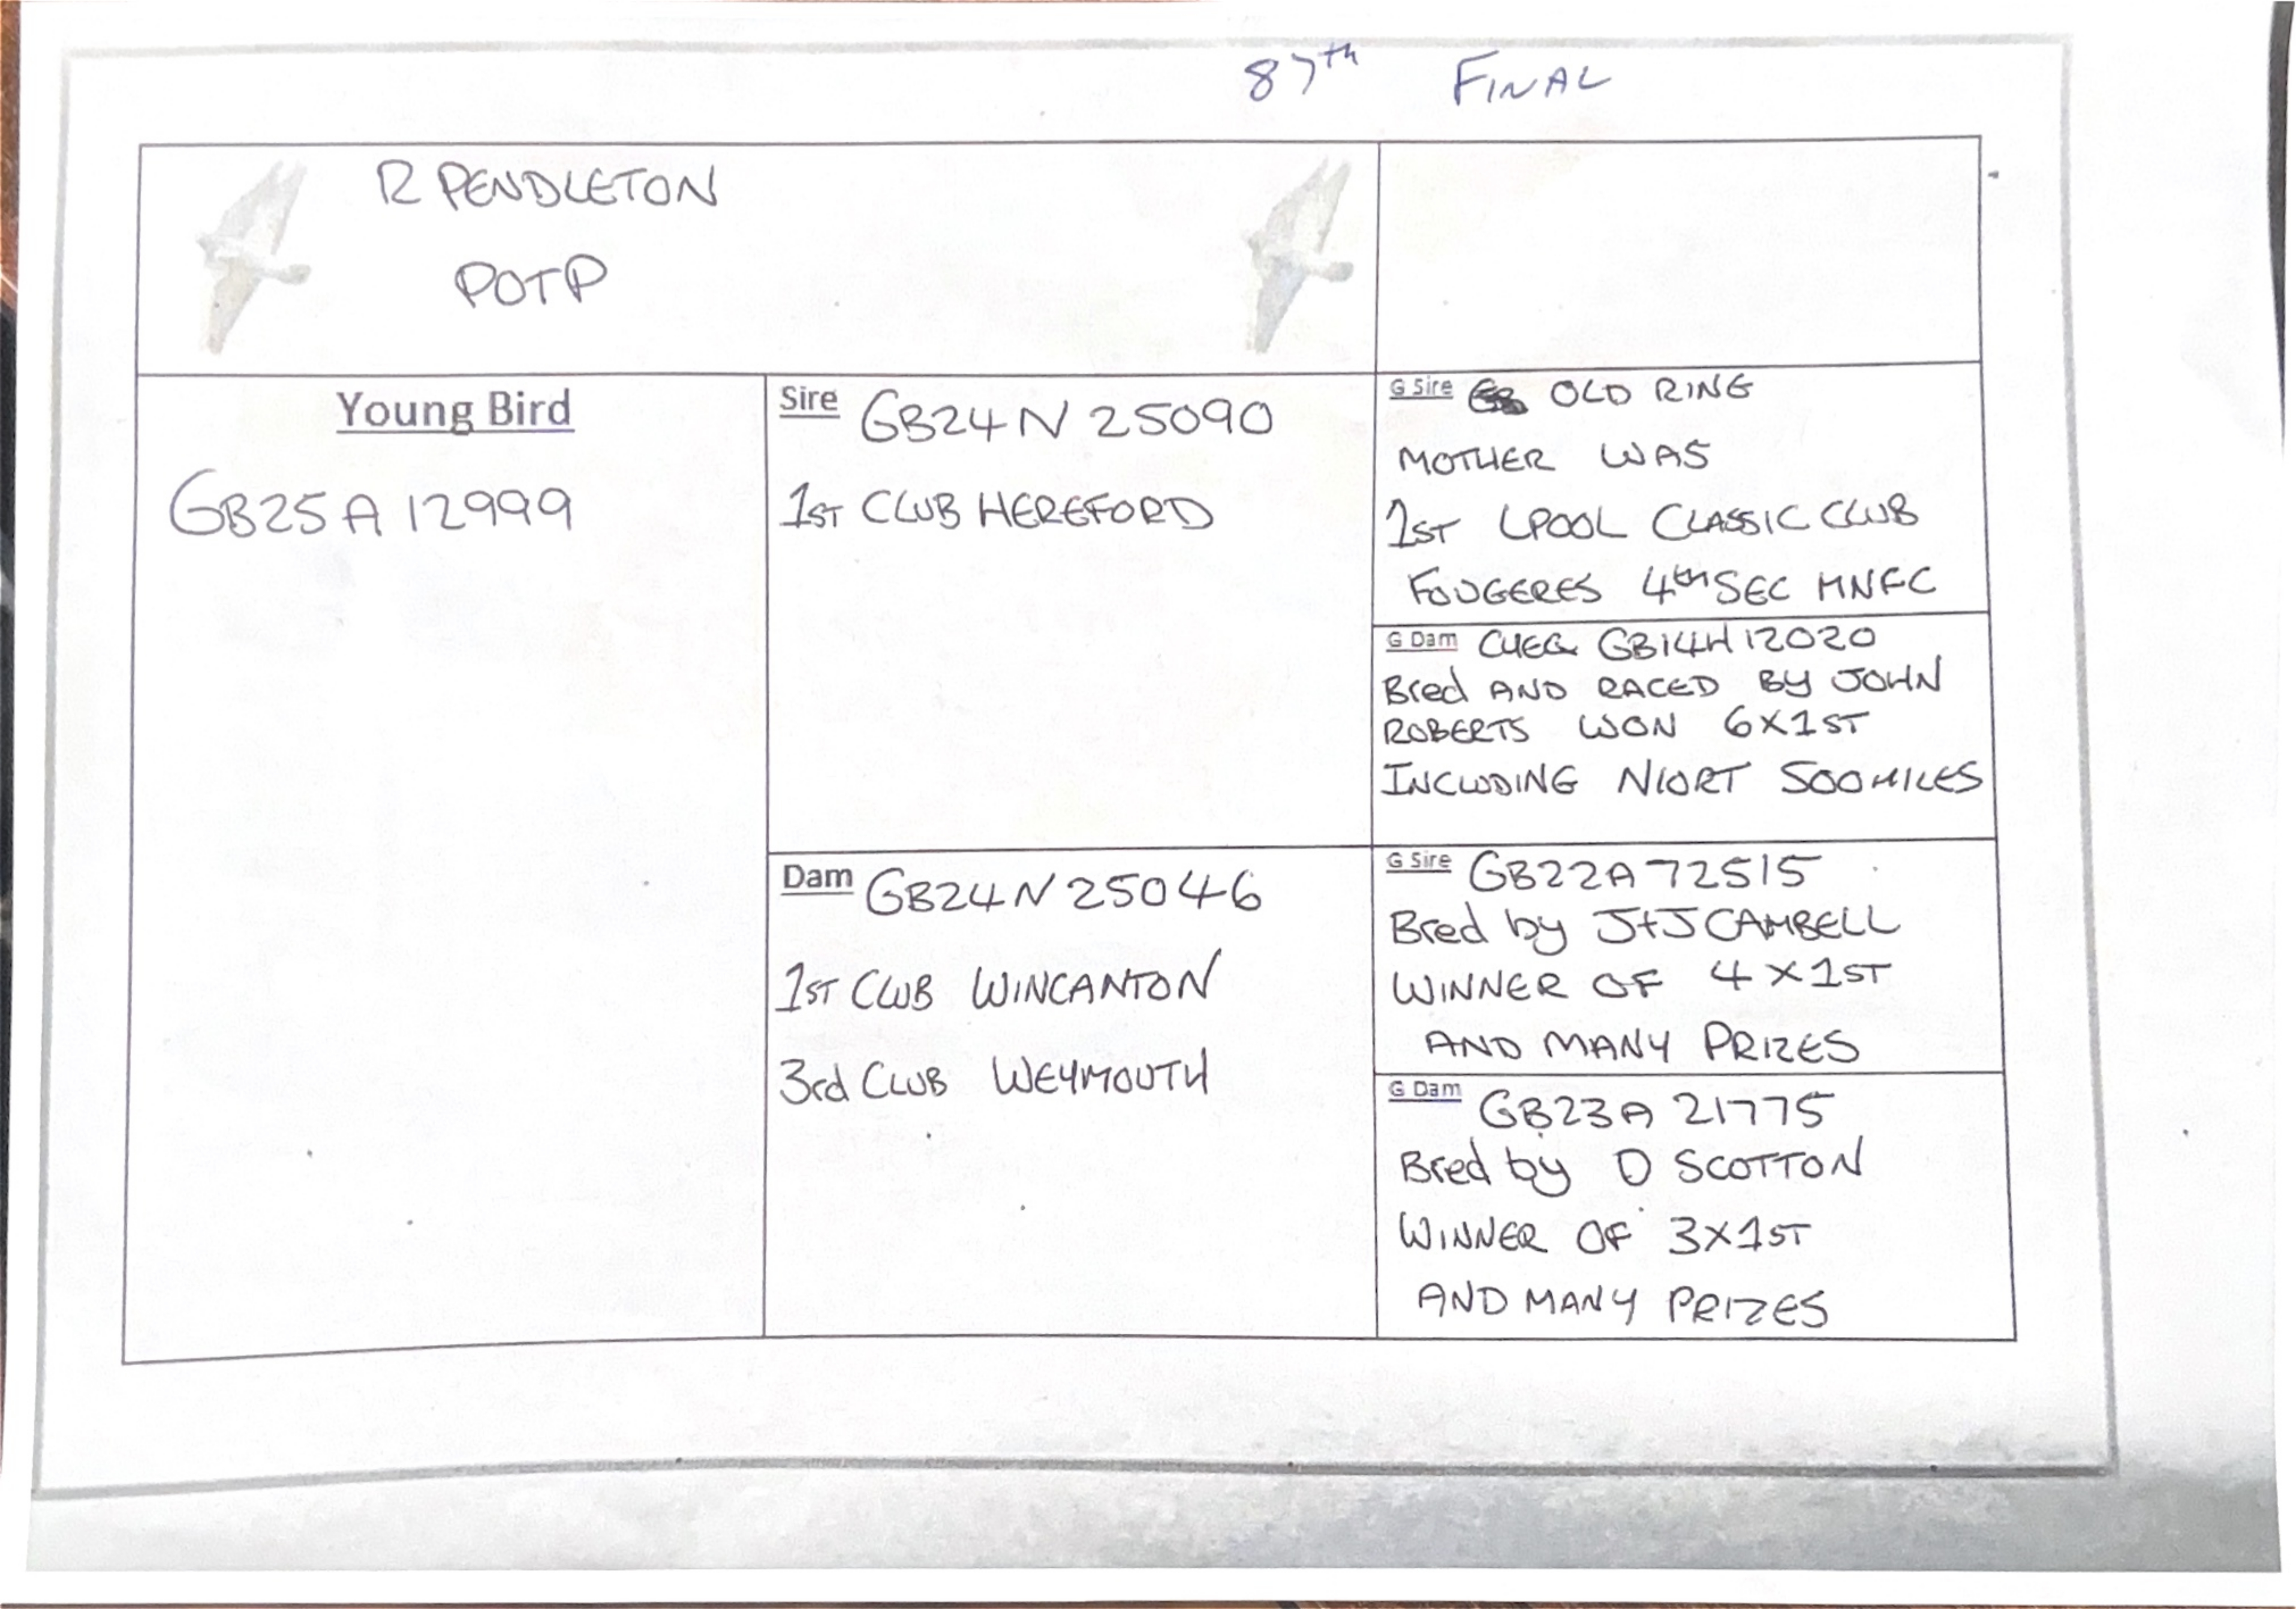 87th FINAL
R PENDLETON
POTP
Young Bird
GB25A12999
Sire GB24N25090
1ST CLUB HEREFORD
Dam GB24N25046
1ST CLUB WINCANTON
3rd CLUB WEYMOUTH
G Sire OLD RING
MOTHER WAS
1ST LPOOL CLASSIC CLUB
FOUGERES 4th SEC MNFC
G Dam CHEQ GB14H12020
Bred AND RACED BY JOHN
ROBERTS WON 6X1ST
INCLUDING NIORT 500MILES
G Sire GB22A72515
Bred by J+J CAMBELL
WINNER OF 4X1ST
AND MANY PRIZES
G Dam GB23A21775
Bred by D SCOTTON
WINNER OF 3X1ST
AND MANY PRIZES